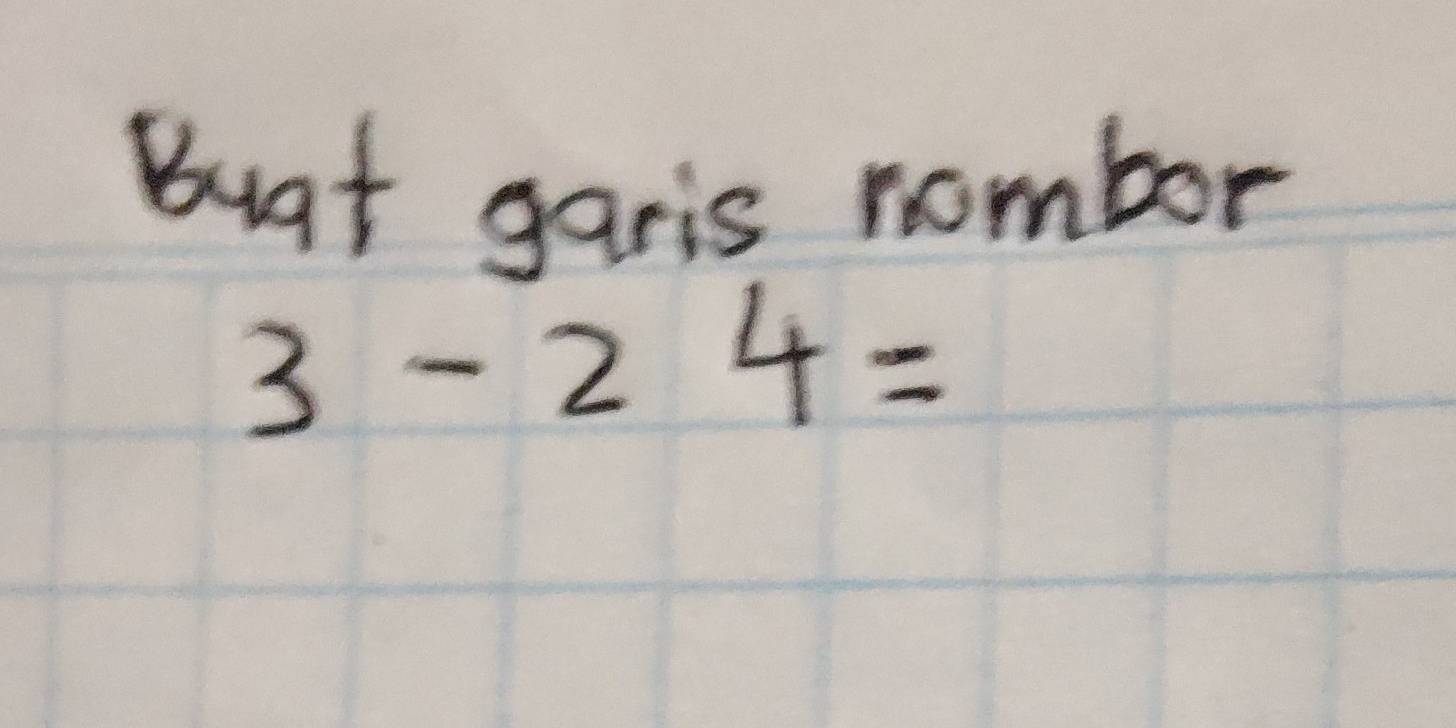 Buat garis nombor
3 - 2 4 =